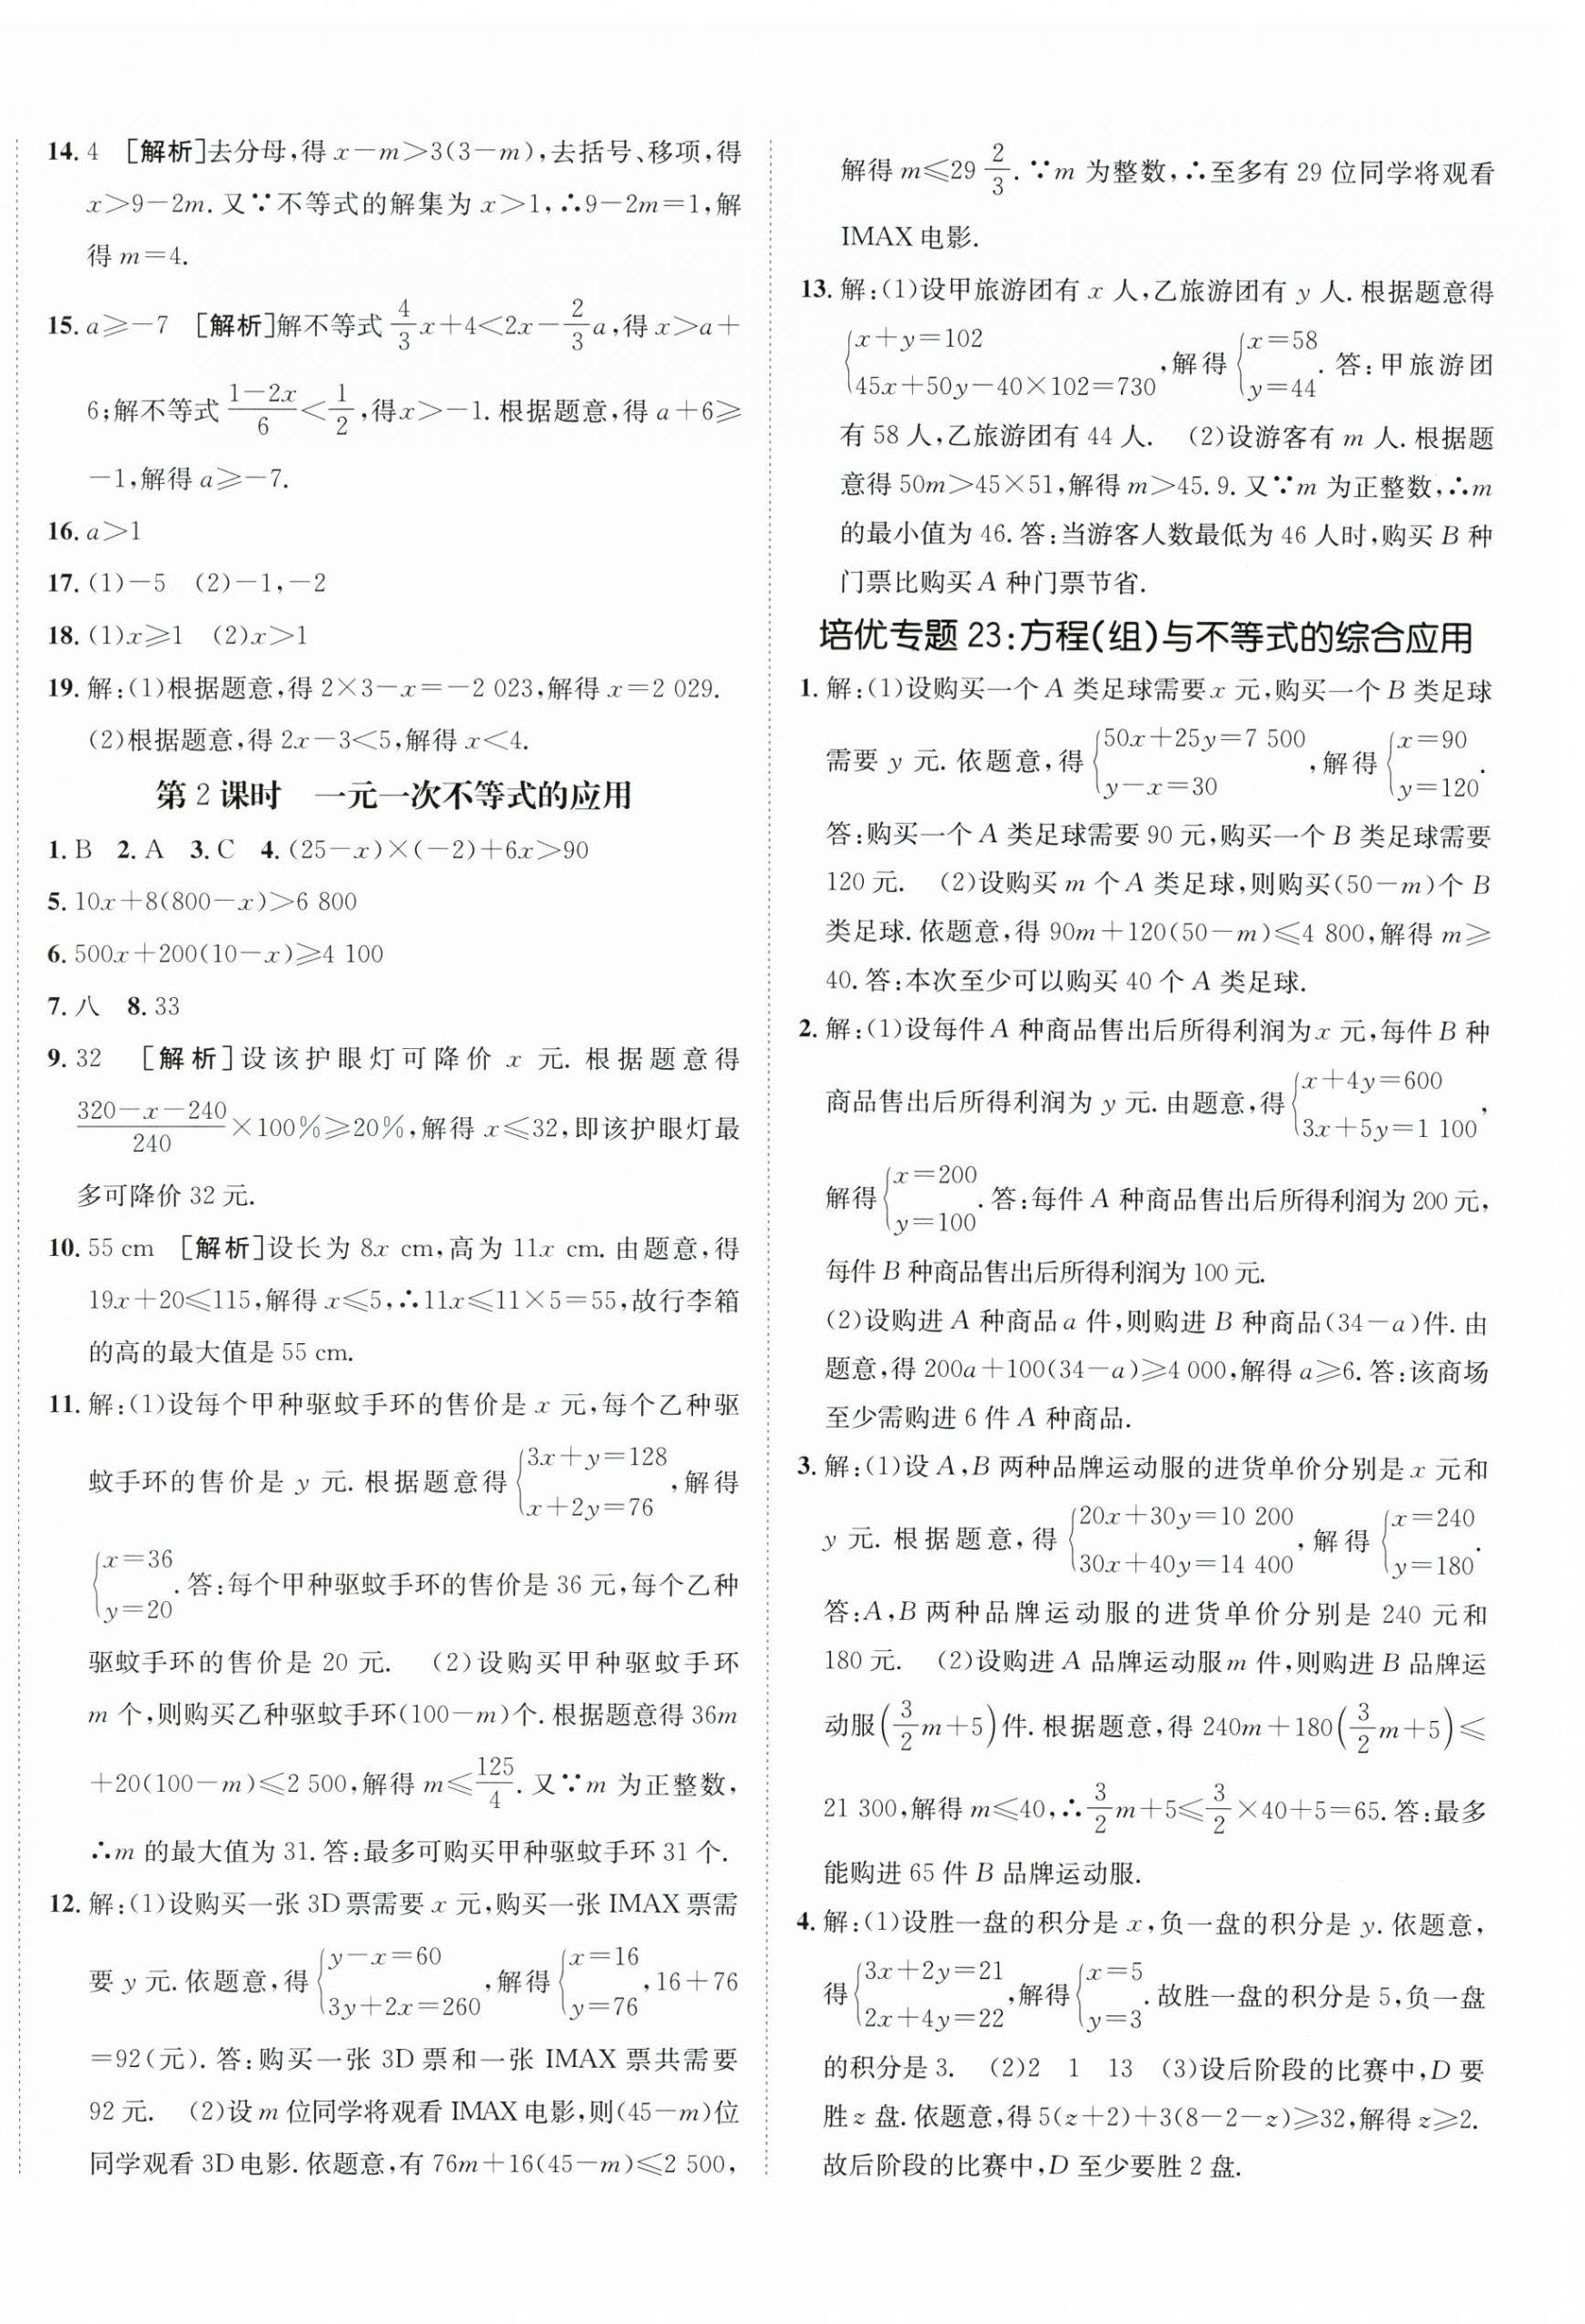 14. 4 [解析]去分母,得 x－m＞3(3－m),去括号、移项,得
x＞9－2m. 又∵不等式的解集为 x＞1,∴9－2m＝1,解
得 m＝4.
15. a≥－7 [解析]解不等式 4/3 x＋4＜2x－2/3 a,得 x＞a＋
6;解不等式 (1－2x)/6＜1/2,得x＞－1. 根据题意,得 a＋6≥
－1,解得 a≥－7.
16. a＞1
17. (1)－5 (2)－1,－2
18. (1)x≥1 (2)x＞1
19. 解:(1)根据题意,得 2×3－x＝－2 023,解得 x＝2 029.
(2)根据题意,得 2x－3＜5,解得 x＜4.
第 2 课时 一元一次不等式的应用
1. B 2. A 3. C 4. (25－x)×(－2)＋6x＞90
5. 10x＋8(800－x)＞6 800
6. 500x＋200(10－x)≥4 100
7. 八 8. 33
9. 32 [解析]设该护眼灯可降价 x 元. 根据题意得
(320－x－240)/240×100%≥20%,解得 x≤32,即该护眼灯最
多可降价 32 元.
10. 55 cm [解析]设长为 8x cm,高为 11x cm. 由题意,得
19x＋20≤115,解得 x≤5,∴11x≤11×5＝55,故行李箱
的高的最大值是 55 cm.
11. 解:(1)设每个甲种驱蚊手环的售价是 x 元,每个乙种驱
蚊手环的售价是 y 元. 根据题意得{3x＋y＝128 x＋2y＝76,解得
{x＝36 y＝20.答:每个甲种驱蚊手环的售价是 36 元,每个乙种
驱蚊手环的售价是 20 元. (2)设购买甲种驱蚊手环
m 个,则购买乙种驱蚊手环(100－m)个. 根据题意得 36m
＋20(100－m)≤2 500,解得 m≤125/4. 又∵m 为正整数,
∴m 的最大值为 31. 答:最多可购买甲种驱蚊手环 31 个.
12. 解:(1)设购买一张 3D 票需要 x 元,购买一张 IMAX 票需
要 y 元. 依题意,得{y－x＝60 3y＋2x＝260,解得{x＝16 y＝76,16＋76
＝92(元). 答:购买一张 3D 票和一张 IMAX 票共需要
92 元. (2)设 m 位同学将观看 IMAX 电影,则(45－m)位
同学观看 3D 电影. 依题意,有 76m＋16(45－m)≤2 500,
解得 m≤29 2/3. ∵m 为整数,∴至多有 29 位同学将观看
IMAX 电影.
13. 解:(1)设甲旅游团有 x 人,乙旅游团有 y 人. 根据题意得
{x＋y＝102 45x＋50y－40×102＝730,解得{x＝58 y＝44. 答:甲旅游团
有 58 人,乙旅游团有 44 人. (2)设游客有 m 人. 根据题
意得 50m＞45×51,解得 m＞45. 9. 又∵m 为正整数,∴m
的最小值为 46. 答:当游客人数最低为 46 人时,购买 B 种
门票比购买 A 种门票节省.
培优专题 23:方程(组)与不等式的综合应用
1. 解:(1)设购买一个 A 类足球需要 x 元,购买一个 B 类足球
需要 y 元. 依题意,得{50x＋25y＝7 500 y－x＝30,解得{x＝90 y＝120.
答:购买一个 A 类足球需要 90 元,购买一个 B 类足球需要
120 元. (2)设购买 m 个 A 类足球,则购买(50－m)个 B
类足球. 依题意,得 90m＋120(50－m)≤4 800,解得 m≥
40. 答:本次至少可以购买 40 个 A 类足球.
2. 解:(1)设每件 A 种商品售出后所得利润为 x 元,每件 B 种
商品售出后所得利润为 y 元. 由题意,得{x＋4y＝600 3x＋5y＝1 100,
解得{x＝200 y＝100. 答:每件 A 种商品售出后所得利润为 200 元,
每件 B 种商品售出后所得利润为 100 元.
(2)设购进 A 种商品 a 件,则购进 B 种商品(34－a)件. 由
题意,得 200a＋100(34－a)≥4 000,解得 a≥6. 答:该商场
至少需购进 6 件 A 种商品.
3. 解:(1)设 A,B 两种品牌运动服的进货单价分别是 x 元和
y 元. 根据题意,得{20x＋30y＝10 200 30x＋40y＝14 400,解得{x＝240 y＝180.
答:A,B 两种品牌运动服的进货单价分别是 240 元和
180 元. (2)设购进 A 品牌运动服 m 件,则购进 B 品牌运
动服(3/2 m＋5)件. 根据题意,得 240m＋180(3/2 m＋5)≤
21 300,解得 m≤40,∴3/2 m＋5≤3/2×40＋5＝65. 答:最多
能购进 65 件 B 品牌运动服.
4. 解:(1)设胜一盘的积分是 x,负一盘的积分是 y. 依题意,
得{3x＋2y＝21 2x＋4y＝22,解得{x＝5 y＝3. 故胜一盘的积分是 5,负一盘
的积分是 3. (2)2 1 13 (3)设后阶段的比赛中,D 要
胜 z 盘. 依题意,得 5(z＋2)＋3(8－2－z)≥32,解得 z≥2.
故后阶段的比赛中,D 至少要胜 2 盘.